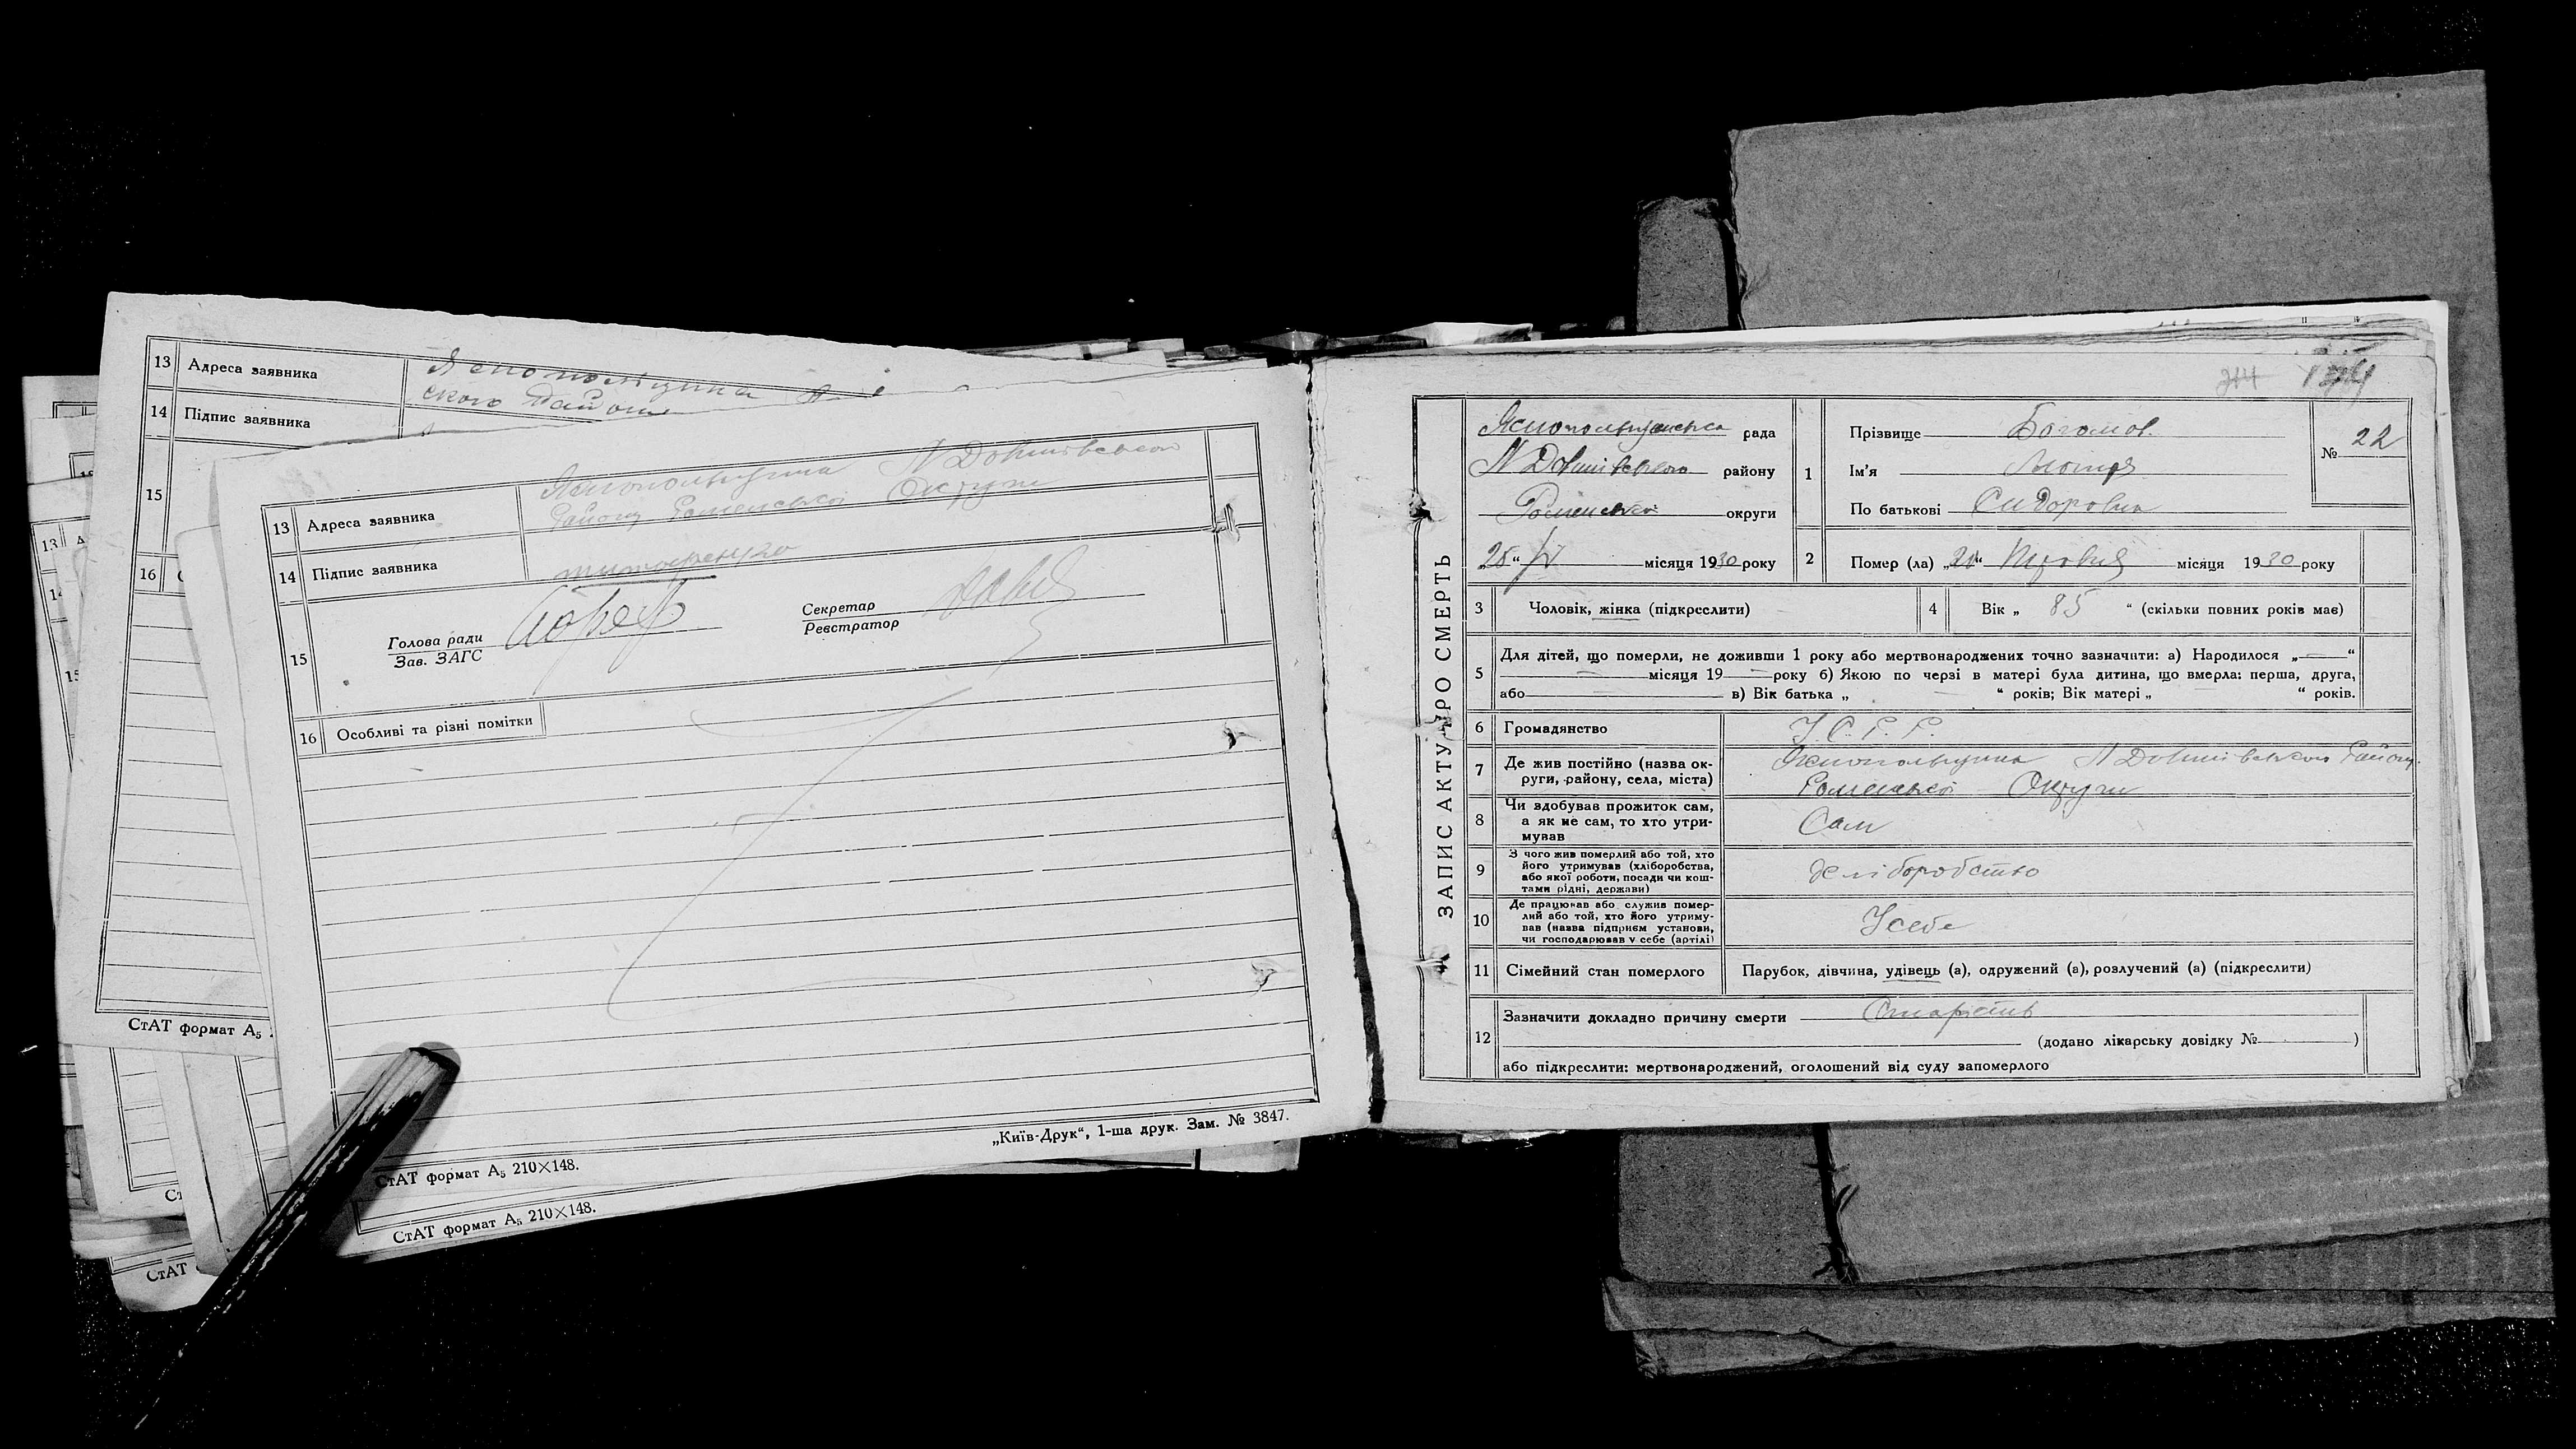 13 Адреса заявника
14 Підпис заявника
15
16
13 Адреса заявника Яснопольщина
району Роменської Округи
14 Підпис заявника
15 Голова ради
Зав. ЗАГС
Секретар
Реєстратор
16 Особливі та різні помітки
„Київ-Друк“, 1-ша друк. Зам. № 3847.
СтАТ формат А₅ 210×148.
СтАТ формат А₅ 210×148.
СтАТ формат А₅
СтАТ
ЗАПИС АКТУ ПРО СМЕРТЬ
рада
району
Роменської округи
28 “ IV місяця 1930 року
1
Прізвище Богомол
Ім’я Мотря
По батькові Сидоровна
№ 22
2 Помер (ла) місяця 1930 року
3 Чоловік, жінка (підкреслити)
4 Вік „ 85 “ (скільки повних років має)
5 Для дітей, що померли, не доживши 1 року або мертвонароджених точно зазначити: а) Народилося „ — “
— місяця 19 — року б) Якою по черзі в матері була дитина, що вмерла: перша, друга,
або в) Вік батька „ “ років; Вік матері „ “ років.
6 Громадянство У. С. Р. Р.
7 Де жив постійно (назва ок-
руги, району, села, міста)
Яснопольщина Району
Роменської Округи
8 Чи здобував прожиток сам,
а як не сам, то хто утри-
мував
Сам
9 З чого жив померлий або той, хто
його утримував (хліборобства,
або якої роботи, посади чи кош-
тами рідні, держави)
хліборобство
10 Де працював або служив помер-
лий або той, хто його утриму-
вав (назва підприєм установи,
чи господарював у себе (артілі)
Усебе
11 Сімейний стан померлого Парубок, дівчина, удівець (а), одружений (а), розлучений (а) (підкреслити)
12 Зазначити докладно причину смерти Старість
(додано лікарську довідку № )
або підкреслити: мертвонароджений, оголошений від суду запомерлого